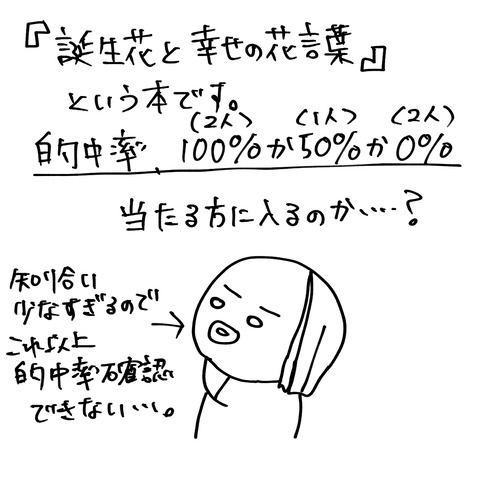 『誕生花と幸せの花言葉』
という本です。
(2人) (1人) (2人)
的中率 100%か50%か0%
当たる方に入るのか…?
知り合い
少なすぎるので
これ以上
的中率確認
できない…。